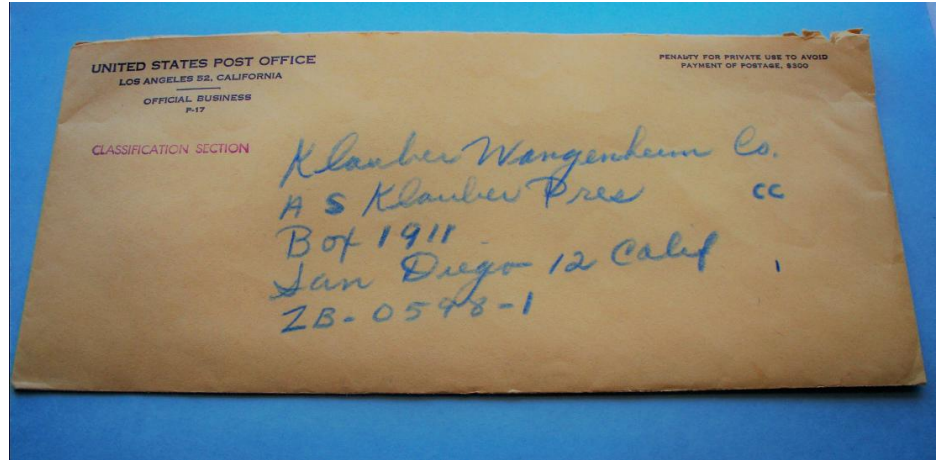 UNITED STATES POST OFFICE
LOS ANGELES 52, CALIFORNIA
OFFICIAL BUSINESS
P-17
PENALTY FOR PRIVATE USE TO AVOID
PAYMENT OF POSTAGE, $300
CLASSIFICATION SECTION
Klauber Wangenheim Co.
A S Klauber Pres
CC
Box 1911
San Diego 12 Calif
1
ZB-0598-1